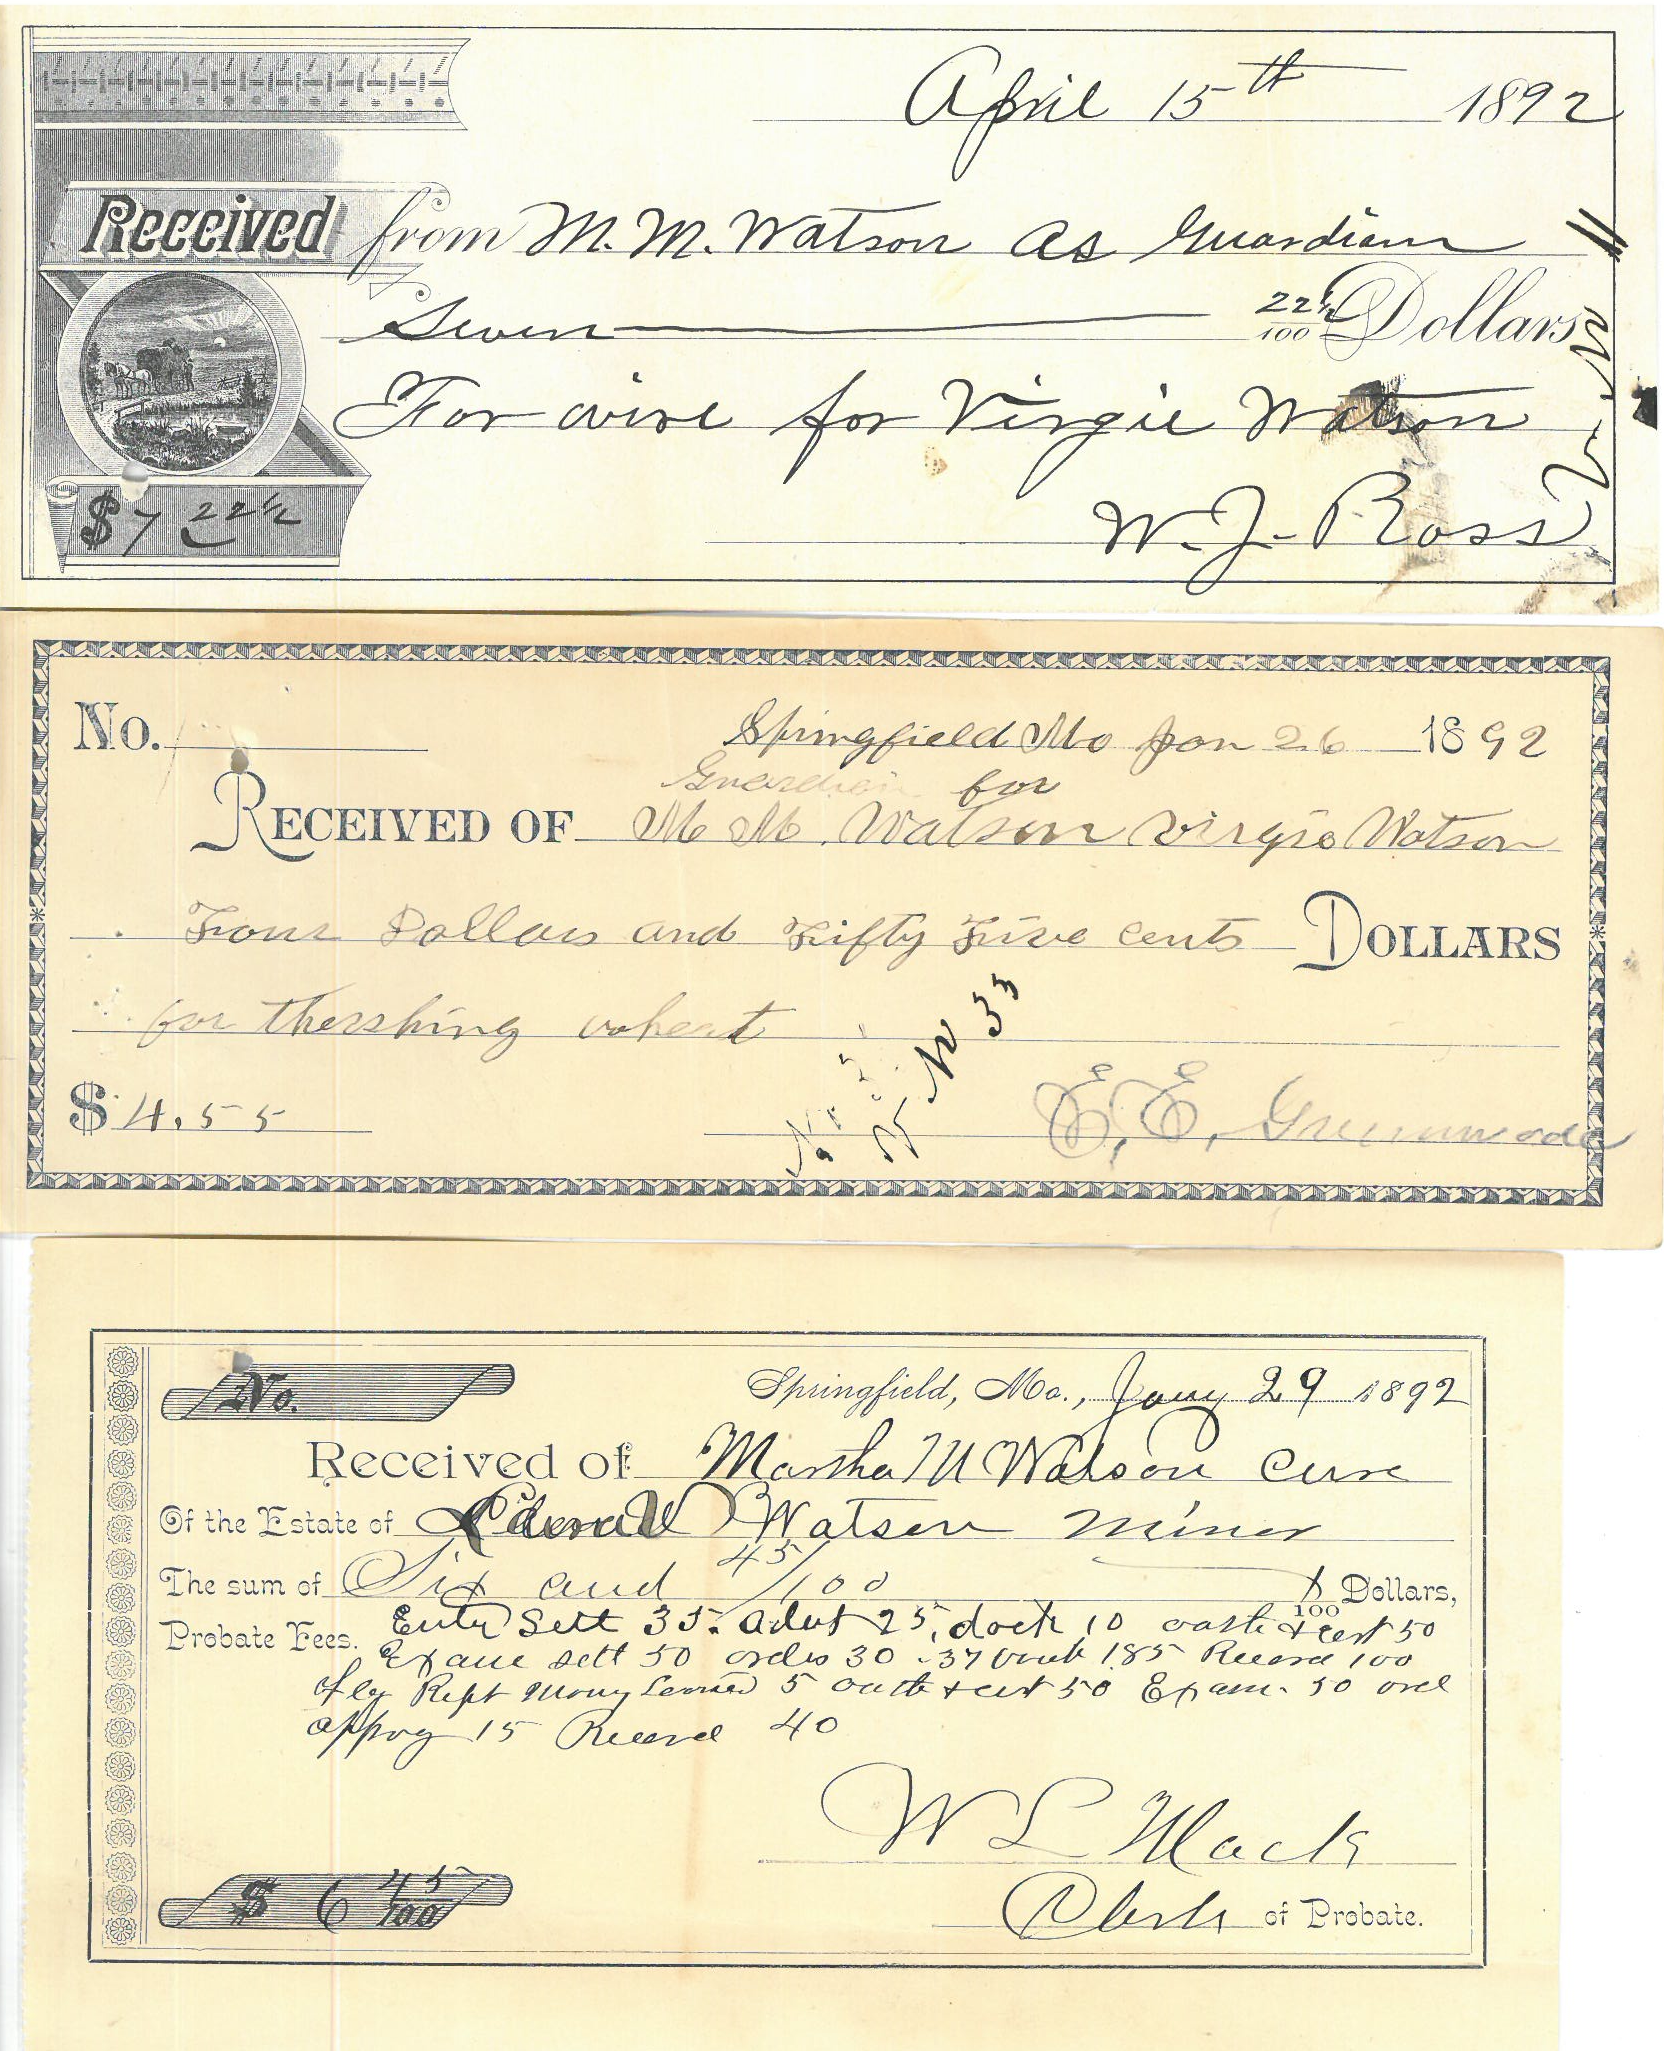 April 15th 1892
Received from M. M. Watson as Guardian
Seven 22½/100 Dollars
For wire for Virgie Watson
$7 22½
W. J. Ross
No. Springfield Mo Jan 26 1892
Guardian for
RECEIVED OF M M. Watson Virgie Watson
Four Dollars and Fifty Five cents DOLLARS
for thershing wheat
33
$4.55 E. E. Greenwode
No. Springfield, Mo., Jany 29 1892
Received of Martha M Watson Cure
Of the Estate of Watson minor
The sum of Six and 45/100 /100 Dollars,
Probate Fees. Entry Sett 35. advt 25, dock 10 oath & cert 50
sett 50 orders 30 37 185 Record 100
Rept Mony Loaned 5 oath & cert 50 Exam. 50 ord
approg 15 Record 40
W L Mack
$ 6 45/100 Clerk of Probate.